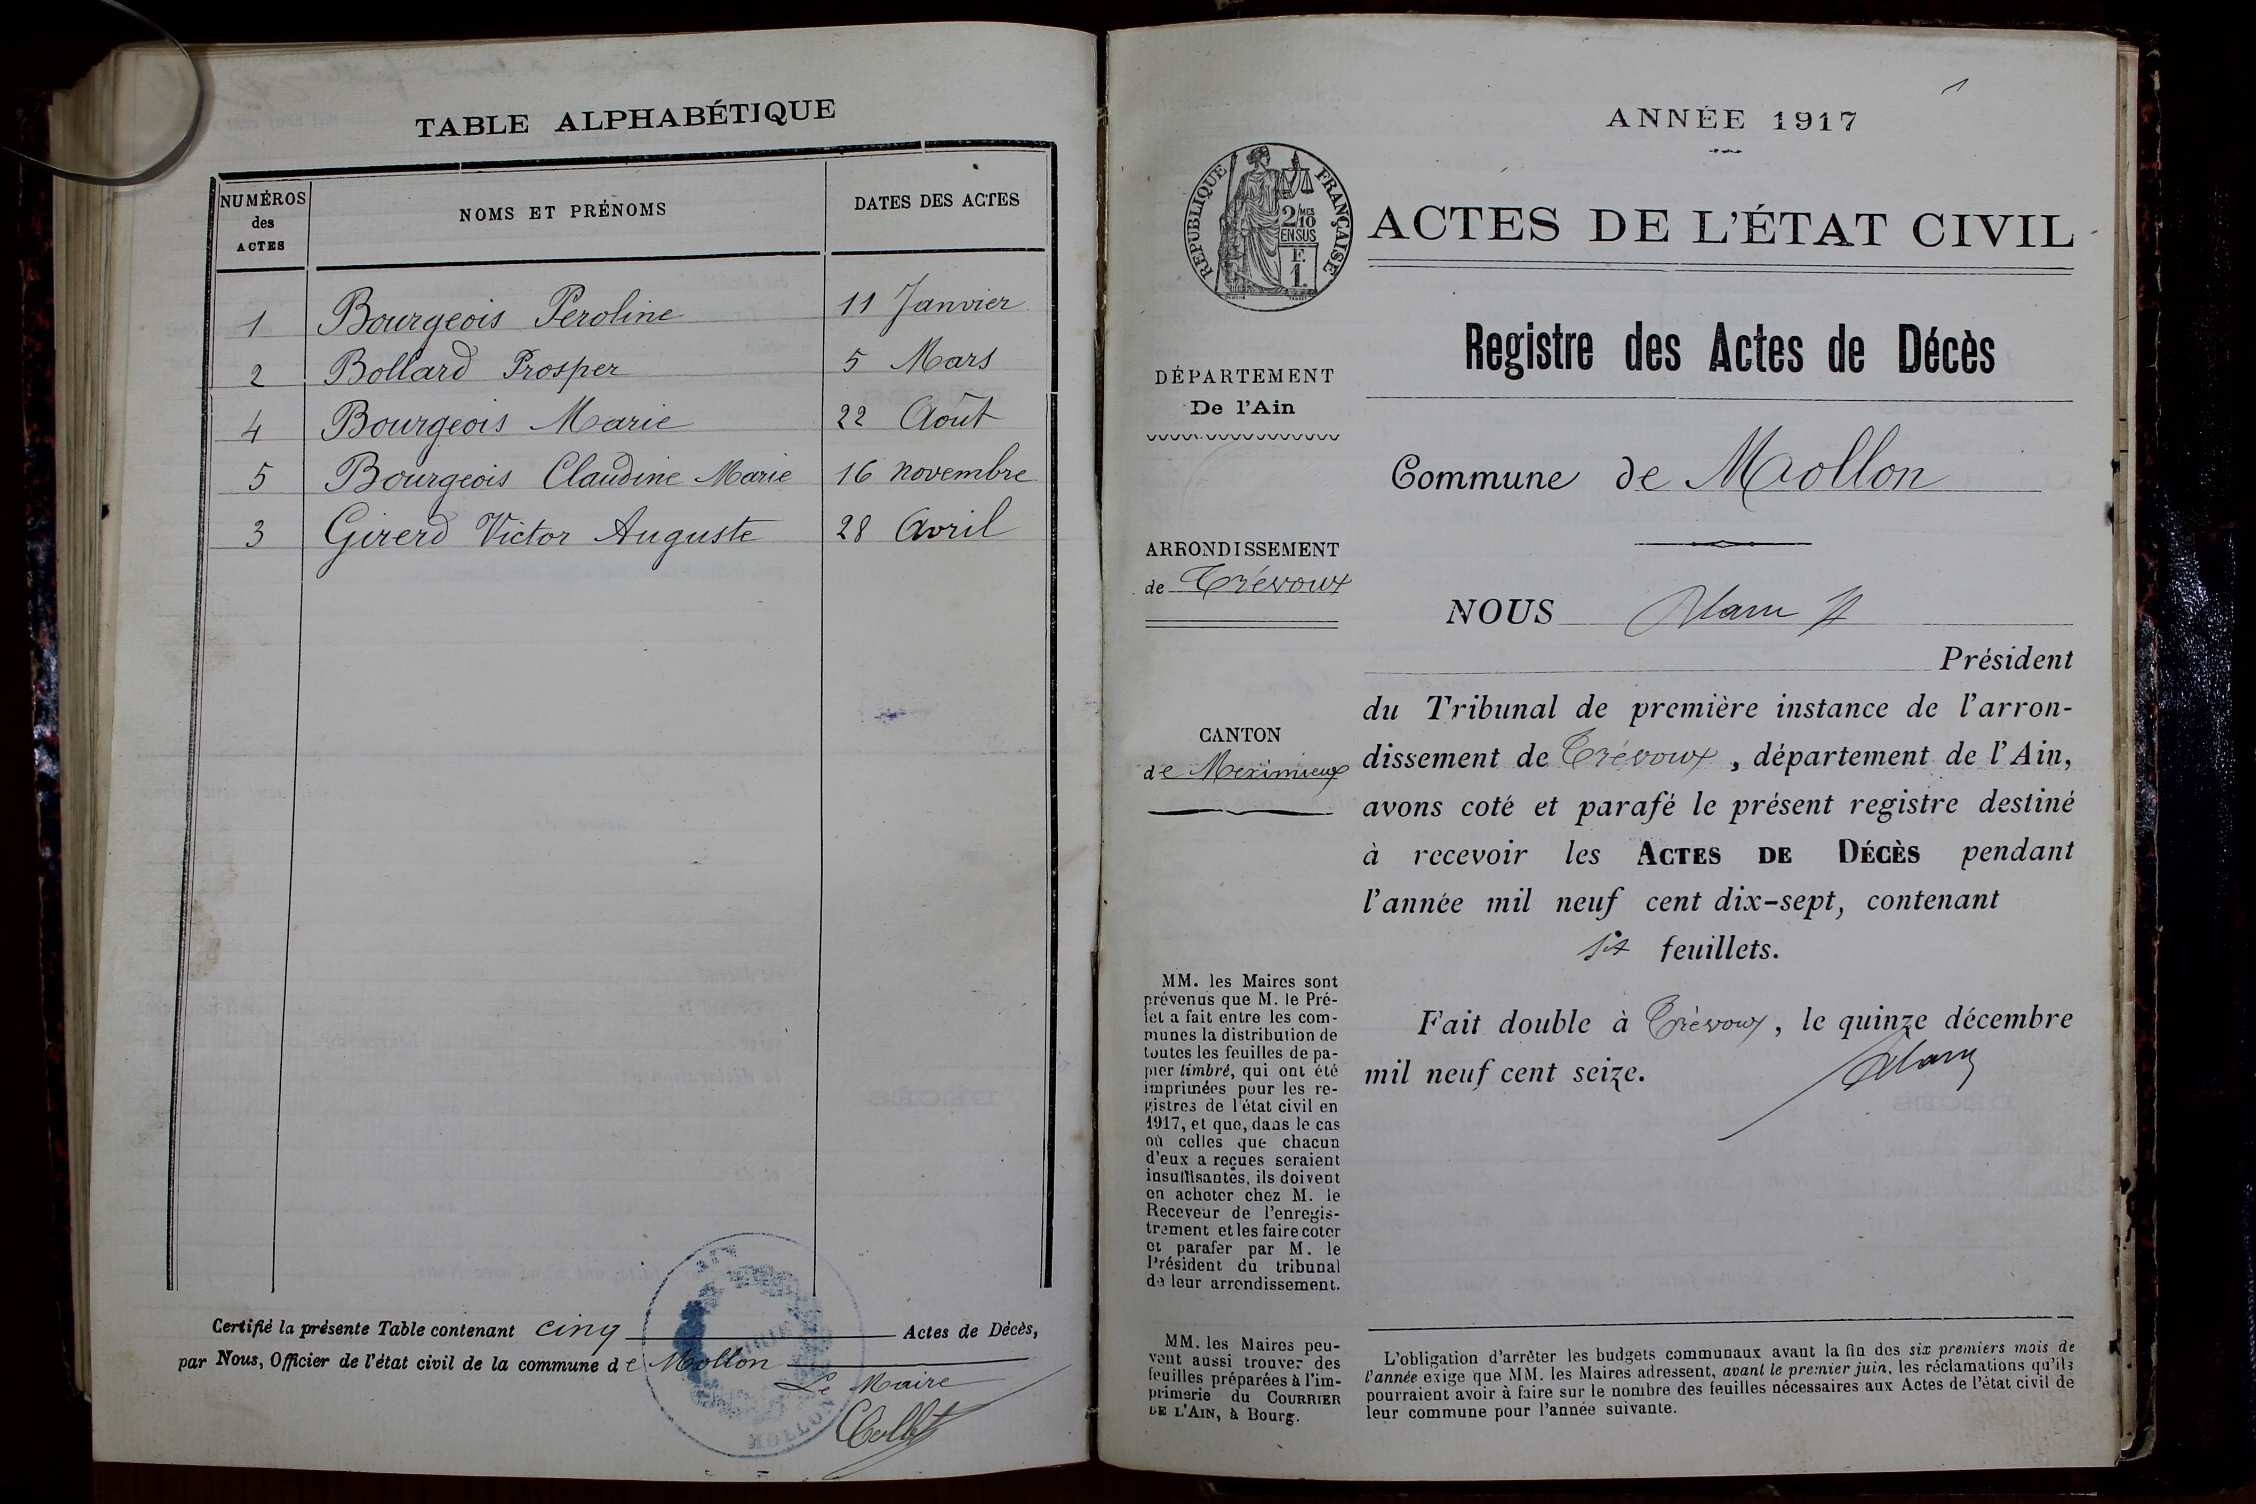 TABLE ALPHABÉTIQUE
NUMÉROS
des
ACTES
NOMS ET PRÉNOMS
DATES DES ACTES
1 Bourgeois Péroline 11 Janvier
2 Bollard Prosper 5 Mars
4 Bourgeois Marie 22 Août
5 Bourgeois Claudine Marie 16 novembre
3 Girerd Victor Auguste 28 Avril
Certifié la présente Table contenant cinq Actes de Décès,
par Nous, Officier de l'état civil de la commune de Mollon
Le Maire
Collet
1
ANNÉE 1917
RÉPUBLIQUE FRANÇAISE
2/10 MES
EN SUS
F.
1.
ACTES DE L'ÉTAT CIVIL
Registre des Actes de Décès
DÉPARTEMENT
De l'Ain
Commune de Mollon
ARRONDISSEMENT
de Trévoux
CANTON
de Meximieux
NOUS
Président
du Tribunal de première instance de l'arron-
dissement de Trévoux, département de l'Ain,
avons coté et parafé le présent registre destiné
à recevoir les ACTES DE DÉCÈS pendant
l'année mil neuf cent dix-sept, contenant
six feuillets.
Fait double à Trévoux, le quinze décembre
mil neuf cent seize.
MM. les Maires sont
prévenus que M. le Pré-
fet a fait entre les com-
munes la distribution de
toutes les feuilles de pa-
pier timbré, qui ont été
imprimées pour les re-
gistres de l'état civil en
1917, et que, dans le cas
où celles que chacun
d'eux a reçues seraient
insuffisantes, ils doivent
en acheter chez M. le
Receveur de l'enregis-
trement et les faire coter
et parafer par M. le
Président du tribunal
de leur arrondissement.
MM. les Maires peu-
vent aussi trouver des
feuilles préparées à l'im-
primerie du COURRIER
DE L'AIN, à Bourg.
L'obligation d'arrêter les budgets communaux avant la fin des six premiers mois de
l'année exige que MM. les Maires adressent, avant le premier juin, les réclamations qu'ils
pourraient avoir à faire sur le nombre des feuilles nécessaires aux Actes de l'état civil de
leur commune pour l'année suivante.